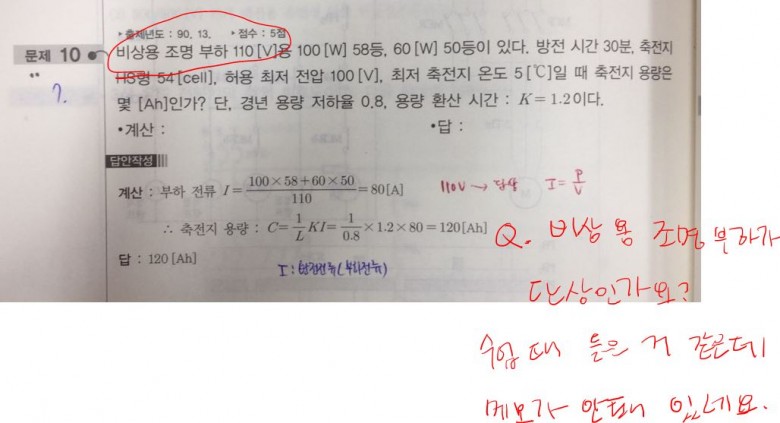 ▸출제년도 : 90. 13. ▸점수 : 5점
문제 10 비상용 조명 부하 110 [V]용 100 [W] 58등, 60 [W] 50등이 있다. 방전 시간 30분, 축전지
HS형 54 [cell], 허용 최저 전압 100 [V], 최저 축전지 온도 5 [℃]일 때 축전지 용량은
몇 [Ah]인가? 단, 경년 용량 저하율 0.8, 용량 환산 시간 : K=1.2이다.
•계산 : •답 :
답안작성
계산 : 부하 전류 I=(100×58+60×50)/110=80[A] 110V → 단상 I=P/V
∴ 축전지 용량 : C=1/L KI=1/0.8×1.2×80=120[Ah]
답 : 120 [Ah]
I : 방전전류(부하전류)
Q. 비상용 조명부하가
단상인가요?
수업 때 들은 거 같은데
메모가 안돼 있네요.